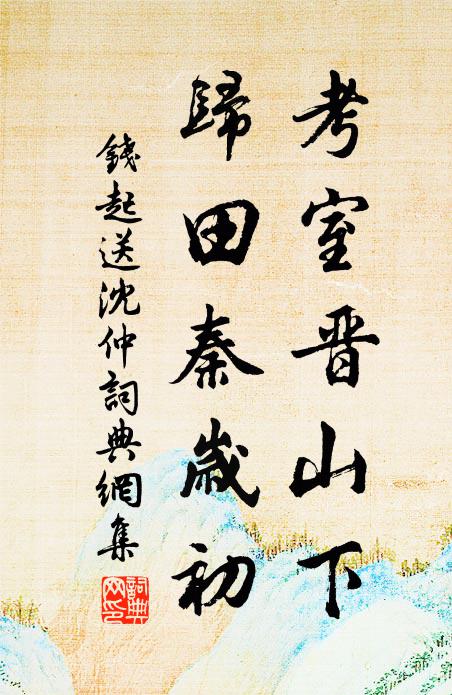 考室晋山下
歸田秦歲初
錢起送沈仲詞典網集
詞典网印